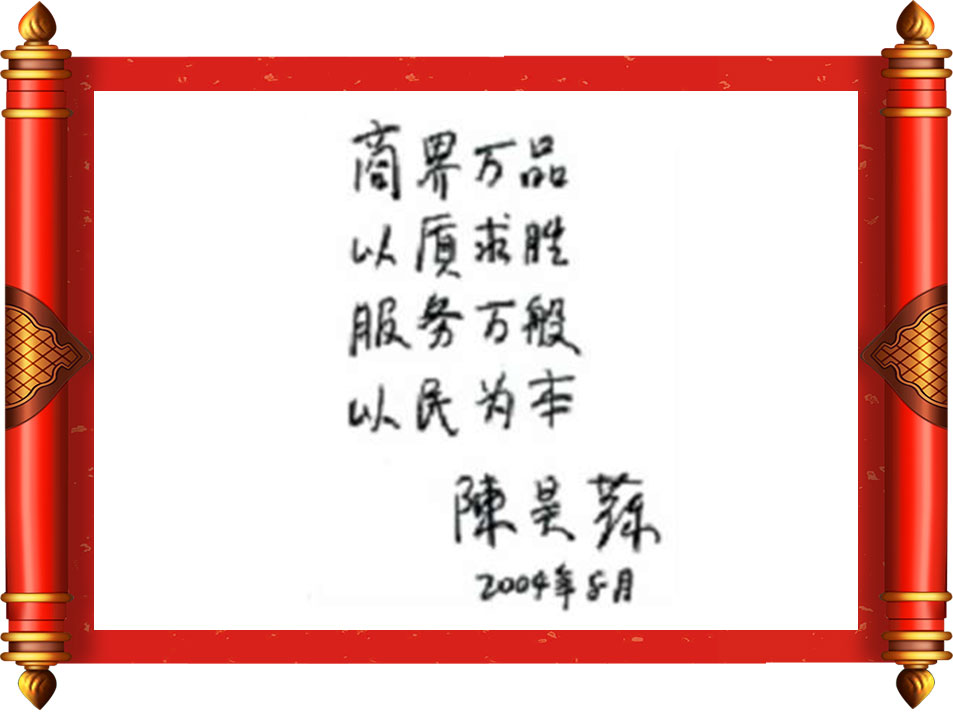 商界万品
以质求胜
服务万般
以民为本
陳昊蘇
2004年8月